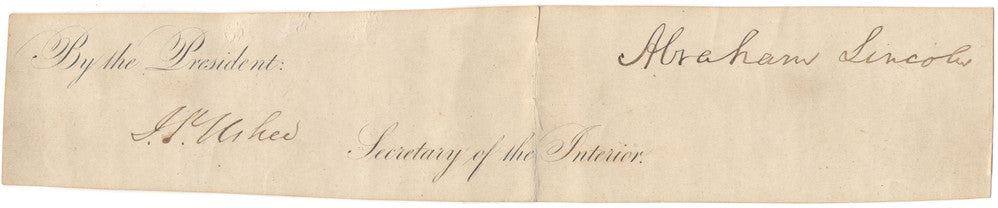 Abraham Lincoln
By the President:
J. P. Usher
Secretary of the Interior.